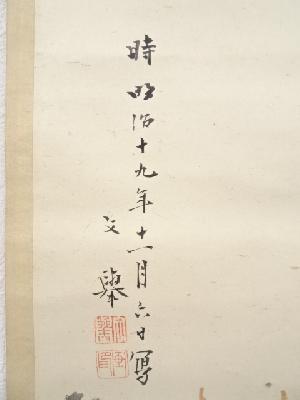 時明治十九年十一月六日寫
文舉